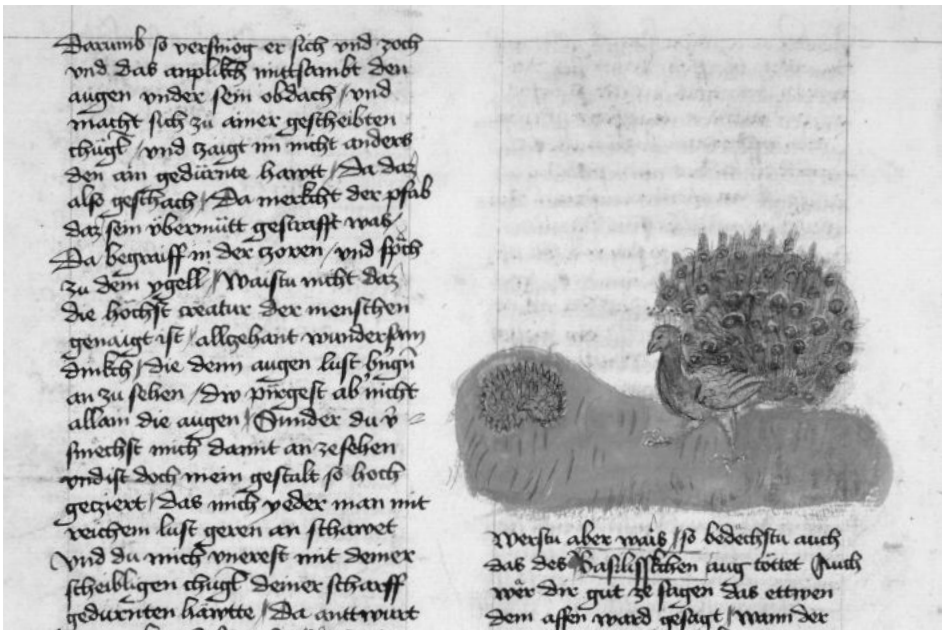 Darumb so versmog er sich vnd zoch
vnd das anplikch mittsambt den
augen vnder sein obdach / vnd
macht sich zu ainer gescheibten
chugl / vnd zaigt im nicht anders
den ain gedürnte hawtt / Da daz
also geschach / Da merkcht der pfab
daz sein vbermütt gestrafft was /
Da begraiff in der tzoren / vnd sprach
zu dem ygell / Waistu nicht daz
die höchst creatur der menschen
genaigt ist / allzehant wundersam
dinkch / die denn augen lust
an zu sehen / dw ab nicht
allain die augen / Sunder du v
smechst mich damit an zesehen
vnd ist doch mein gestalt so hoch
getziert / das mich yeder man mit
reichem lust geren an schawet
Vnd du mich vnerest mit deiner
scheibligen chugl deiner scharff
gedürnten hawtte / Da antwurt
Werstu aber weis / so bedechstu auch
das des Basilisskchen aug tottet Auch
wer dir gut ze sagen das ettwen
dem affen ward gesagt / wann der